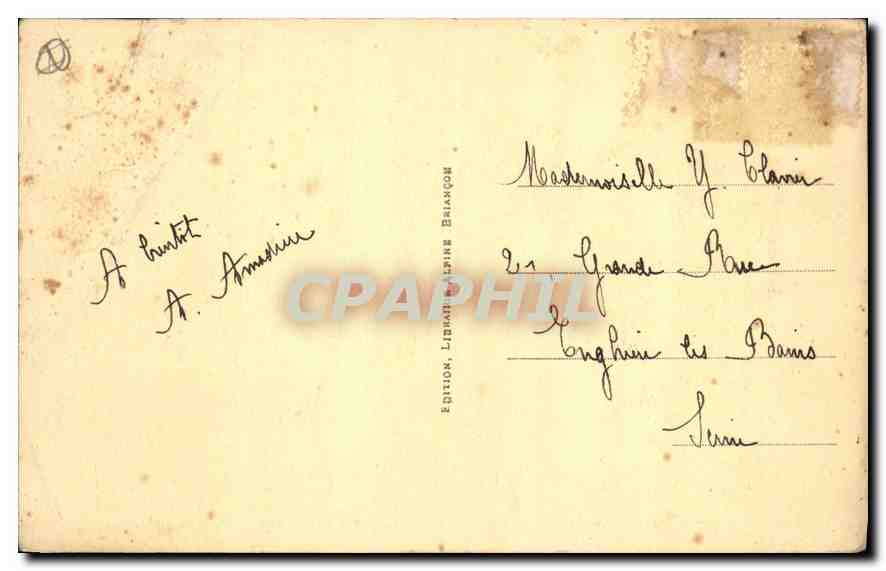 A bientôt
A. Amadieu
EDITION, LIBRAIRIE ALPINE BRIANÇON
Mademoiselle Y. Clavier
21 Grande Rue
Enghien les Bains
Seine
CPAPHIL